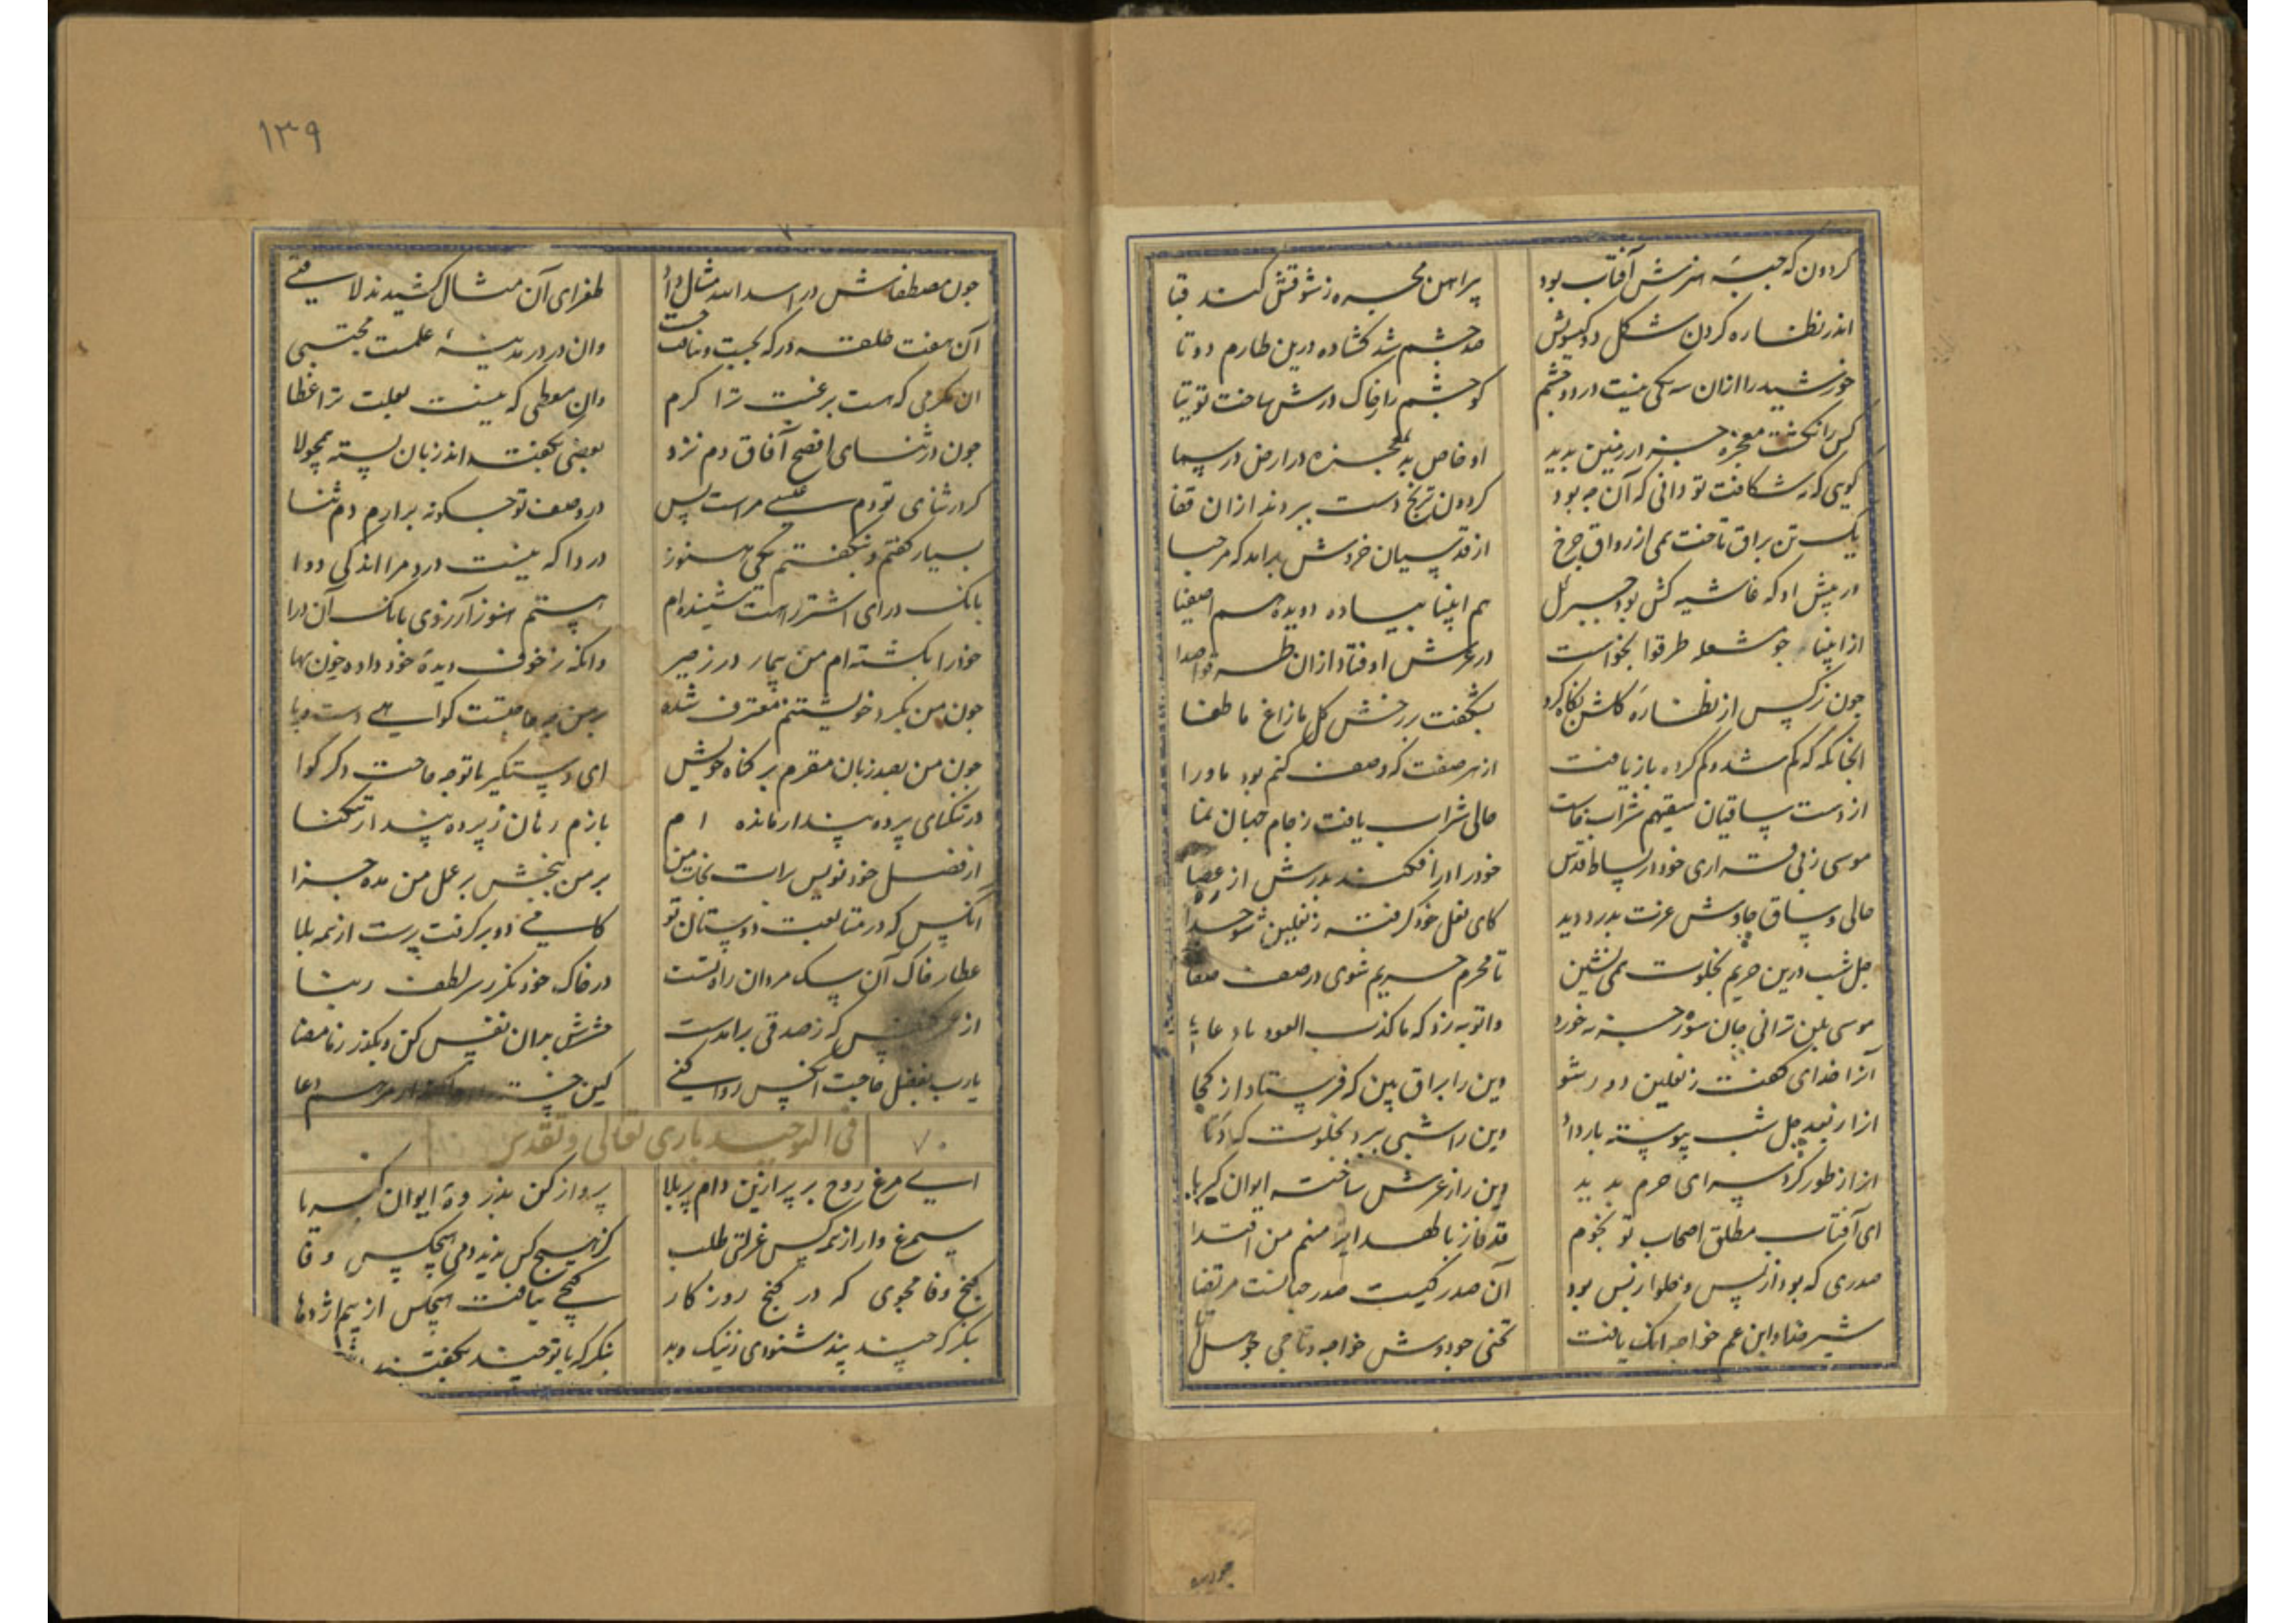 کردون که جبهٔ هنرش آفتاب بود پیراهن مجره ز شوقش کند قبا
اندر نظاره کردن شکل دو کیسوش صد چشم شد کشاده درین طارم دوتا
خورشید را ازان سیکی نیست در دو چشم کو چشم را ز خاک درش ساخت توتیا
کس را نکشت معجزه جز در زمین پدید او خاص بد بمعجزه در ارض و در سما
کویی که مه شکافت تو دانی که آن چه بود کردون ترنج و دست ببریدند ازان قفا
یک تن براق تاخت همی از رواق چرخ از قدسیان خروش برامد که مرحبا
در پیش او که غاشیه کش بود جبرئل هم انبیا پیاده دویده هم اصفیا
از انبیا چو مشعله طرقوا بخواست در عرش اوفتاد ازان طرقوا صدا
چون نرکس از نظارهٔ کلشن نکاه کرد بشکفت بر رخش کل مازاغ ما طغا
انجایکه که کم شد و کم کرده باز یافت از هر صفت که وصف کنم بود ماورا
از دست ساقیان سقیهم شراب خاست حالی شراب یافت ز جام جهان نما
موسی ز بی قراری خود در بساط قدس خود را در افکند بدرش از ره عصا
حالی وشاق چاوش عزت بدر دوید کای نعل خود کرفته ز نعلین شو جدا
چل شب درین حریم بخلوت همی نشین تا محرم حریم شوی در صف صفا
موسی بلن ترانی جان سوز جزیه خورد
آنرا خدای کفت ز نعلین دور شو وین را براق بین که فرستاد از کجا
انرا ز بعد چل شب پیوسته بار داد وین را شبی ببرد بخلوت که دنا
انرا ز طور کرد سپه ای حرم پدید وین را ز عرش ساخته ایوان کبریا
ای آفتاب مطلق اصحاب تو نجوم قد فاز بالهدا منهم من اقتدا
صدری که بود از پس و حلوا ز پس بود آن صدر کیست صدر جهانست مرتضا
شیر خدا و ابن عم خواجه انک یافت تختی چو دوش خواجه و تاجی چو هل اتی
۱۳۹
چون مصطفاش در اسدالله مثال داد طغرای آن مثال کشیدند لا فتی
آن هفت حلقه در که بجست و نیافت وان در در مدینهٔ علمت مجتبی
ان مکرمی که هست برغبت ترا کرم وان معطی که نیست بعلت ترا عطا
چون در ثنای افصح آفاق دم نزد یعنی بکفته اند زبان بسته همچو لا
کر در ثنای تو دم عیسی مراست پس در وصف تو چکونه برارم دم ثنا
بسیار کفتم و نکفتم یکی هنوز دردا که نیست درد مرا اندکی دوا
بانک درای اشترت شنیده ام هستم هنوز آرزوی بانک آن درا
خود را بکشته ام من بیمار در زحیر وانکه ز خوف دیدهٔ خود داده خون بها
چون من بکرد خویشتنم معترف شده بر من چه حاجتست کواهی دست و پا
چون من بصد زبان مقرم بر کناه خویش ای دستکیر با تو چه حاجت دکر کوا
در تنکنای پرده پندار مانده ام بازم رهان ز پرده پندار تنکنا
از فضل خود نویس برات نجات من بر من ببخش بر عمل من مده جزا
انکس که در متابعت دوستان تو کامی دو برکرفت برست از همه بلا
عطار خاک آن سک مردان راه تست در خاک خود نکر ز سر لطف ربنا
از هر نفس که ز صدقی برامدست حشرش بران نفس کن و بکذر ز ما مضا
یارب بفضل حاجت انکس روا کنی کین خسته
۷۰ فی التوحید باری تعالی و تقدس
ای مرغ روح بر پر ازین دام پر بلا پرواز کن بذروهٔ ایوان کبریا
سیمرغ وار از همه کس عزلتی طلب کز هیچ کس ندید دمی هیچکس وفا
کنج وفا مجوی که در کنج روزکار کنجی نیافت هیچکس از بیم اژدها
بنکر که چند پند شنودی ز نیک و بد بنکر که با تو چند بکفتند